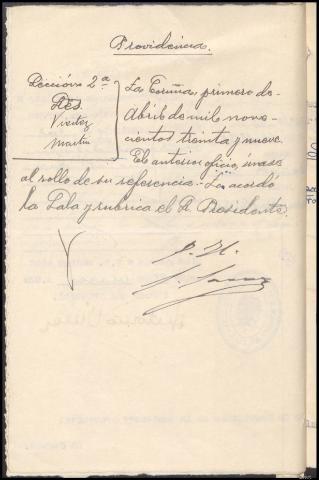 Providencia.
Sección 2ª
Pres.
Vieitez
Martin
La Coruña, primero de
Abril de mil nove-
cientos treinta y nueve.
El anterior oficio, únase
al rollo de su referencia.- Lo acordó
la Sala y rubrica el Sr. Presidente.